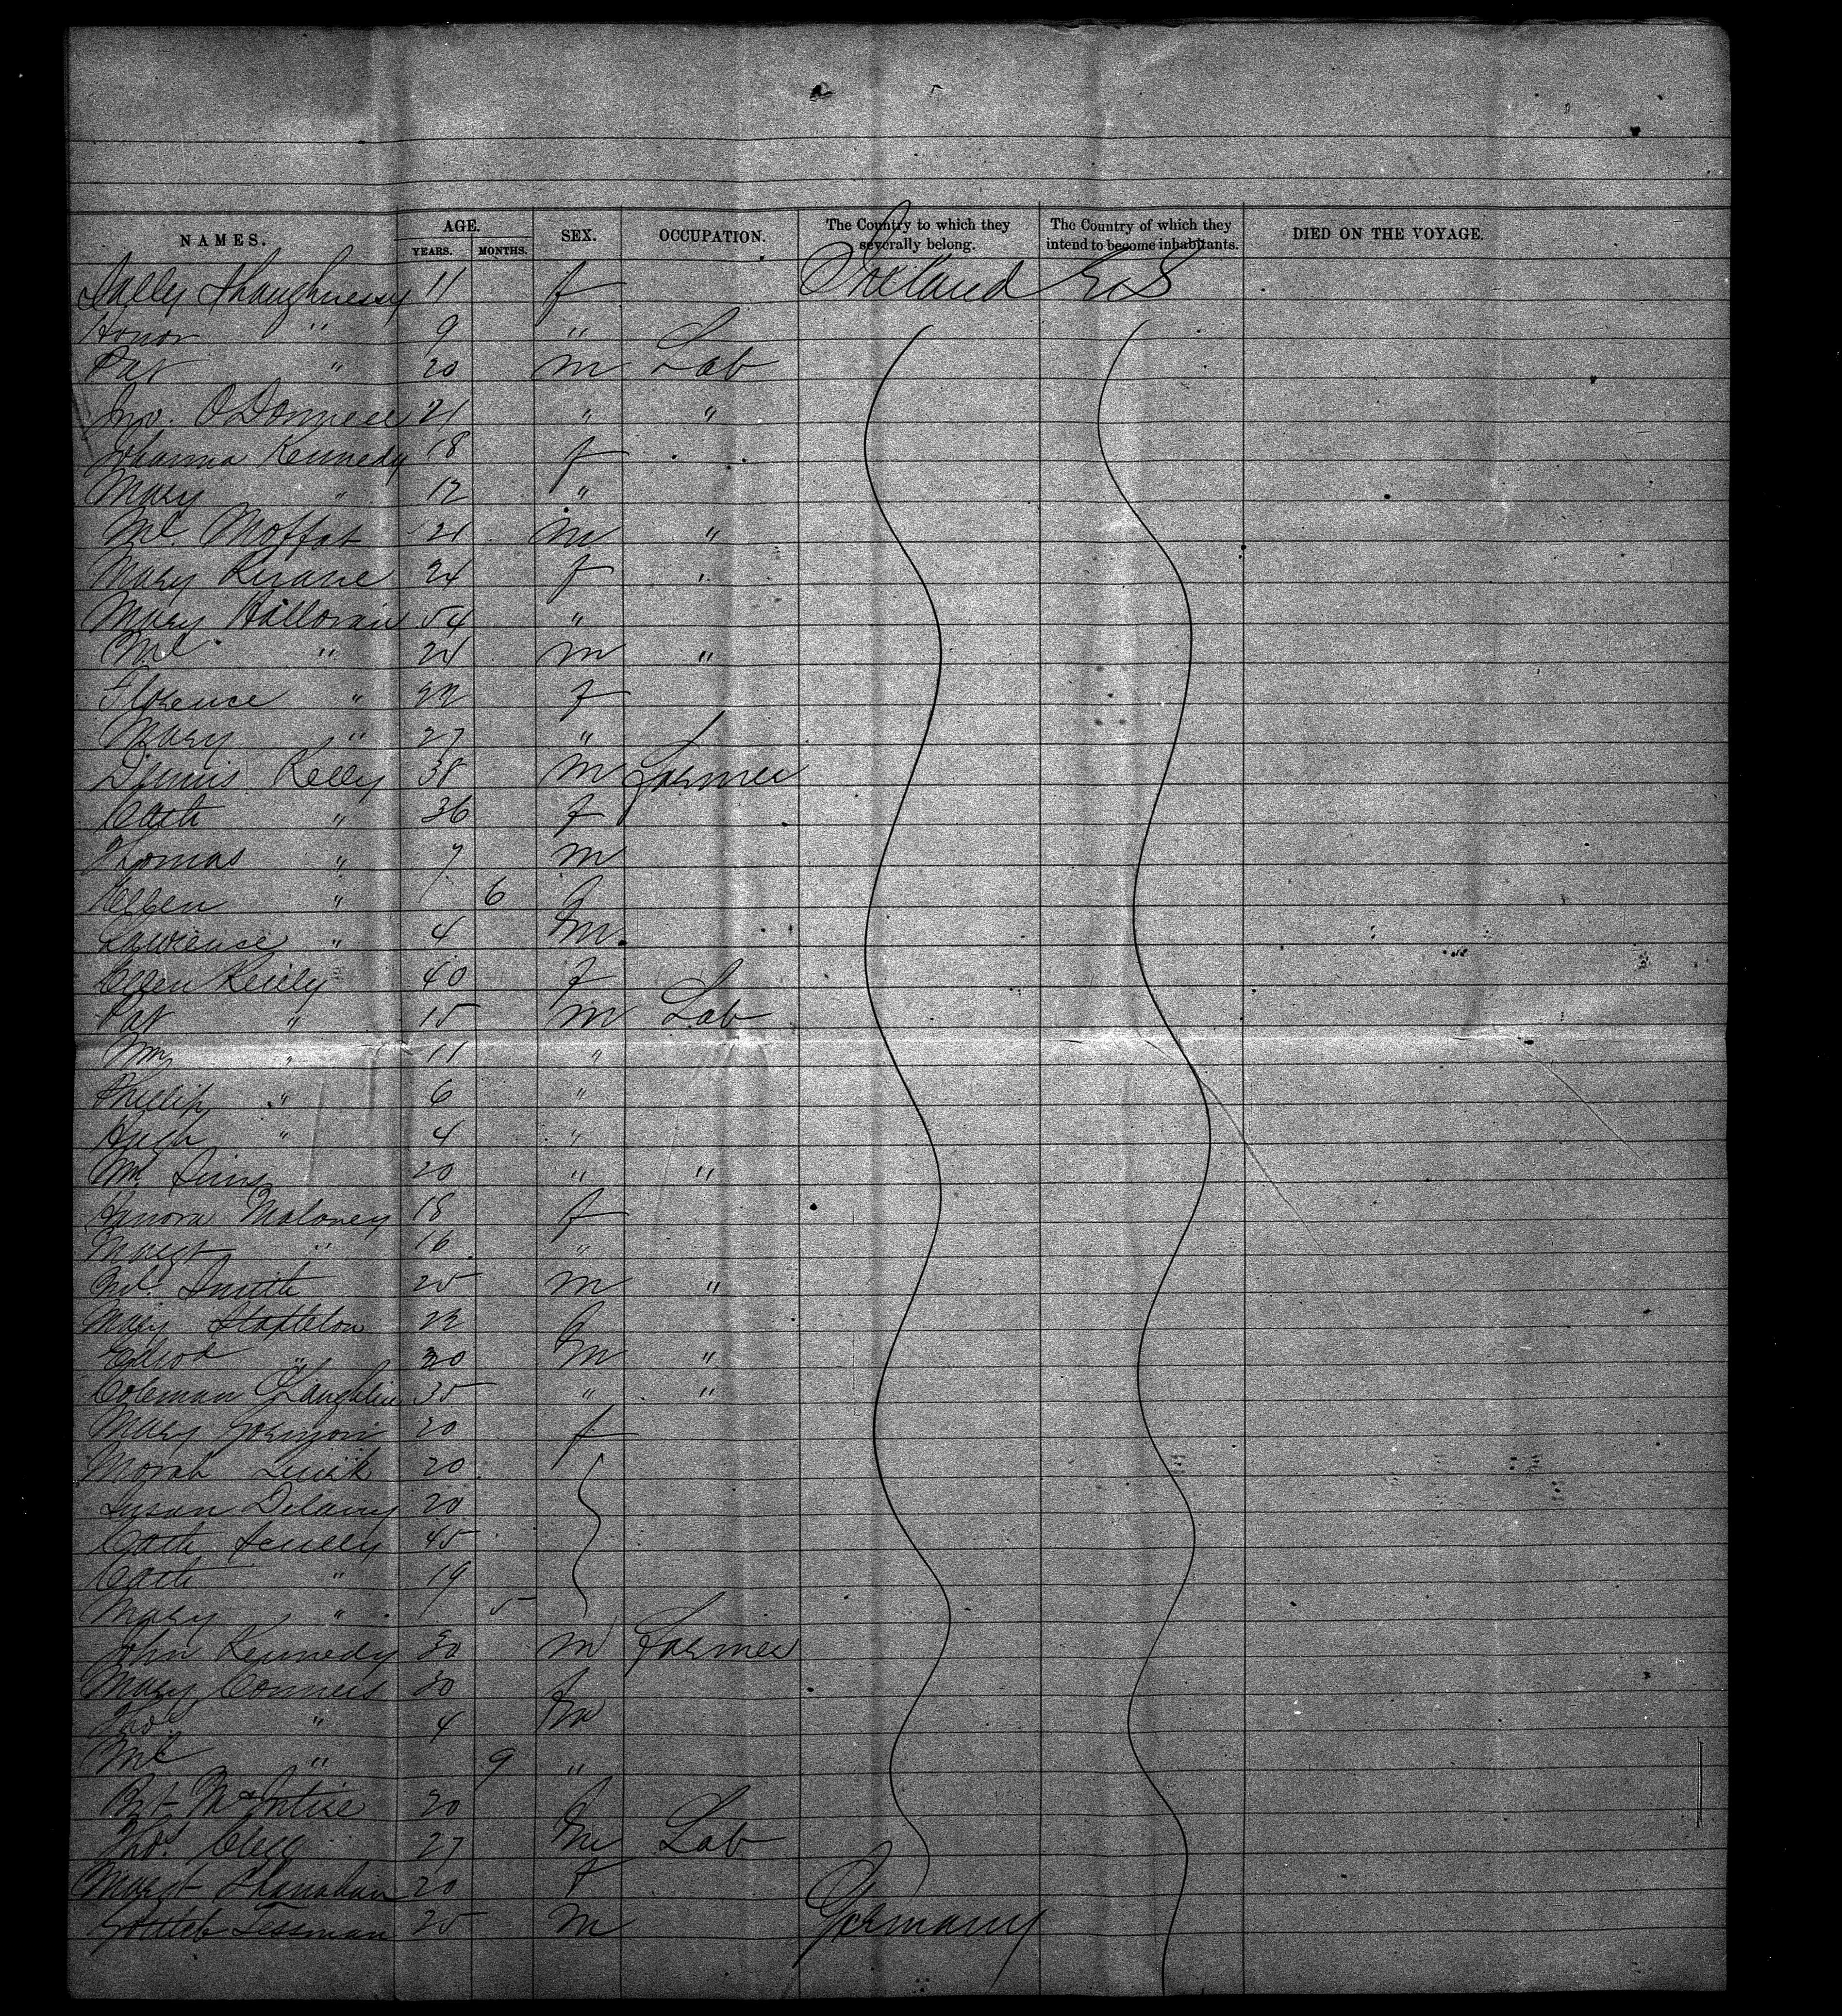 NAMES. AGE. SEX. OCCUPATION. The Country to which they severally belong. The Country of which they intend to become inhabitants. DIED ON THE VOYAGE.
YEARS. MONTHS.
Sally Shaughnessy 11 f Ireland U.S
Honor " 9 "
Pat " 20 m Lab
Jno. ODonnell 21 " "
Johanna Kennedy 18 f
Mary " 12 "
Ml. Moffat 21 m "
Mary Kirane 24 f "
Mary Halloran 54 "
Ml " 24 m "
Florence " 22 f
Mary " 27 "
Dennis Kelly 38 m Farmer
Cath " 36 f
Thomas " 7 m
Ellen " 6 f
Lawrence " 4 m
Ellen Reily 40 f
Pat " 15 m Lab
Wm " 11 "
Phillip " 6 "
Hugh " 4 "
Wm Sims 20 " "
Hanora Maloney 18 f
Margt " 16 "
Ml. Smith 25 m "
Mary Stapleton 22 f
Edwd " 20 m "
Coleman OLaughlin 35 " "
Mary 20 f
Norah Quirk 20
Susan Delany 20
Cath Scully 45
Cath " 19
Mary " 5
John Kennedy 30 m Farmer
Mary Conners 30 f
Jno " 4 m
Ml " 9 "
Bgt McIntire 20 f
Thos. Clegg 27 m Lab
Margt Shanahan 20 f
Gottleb Tessman 25 m Germany